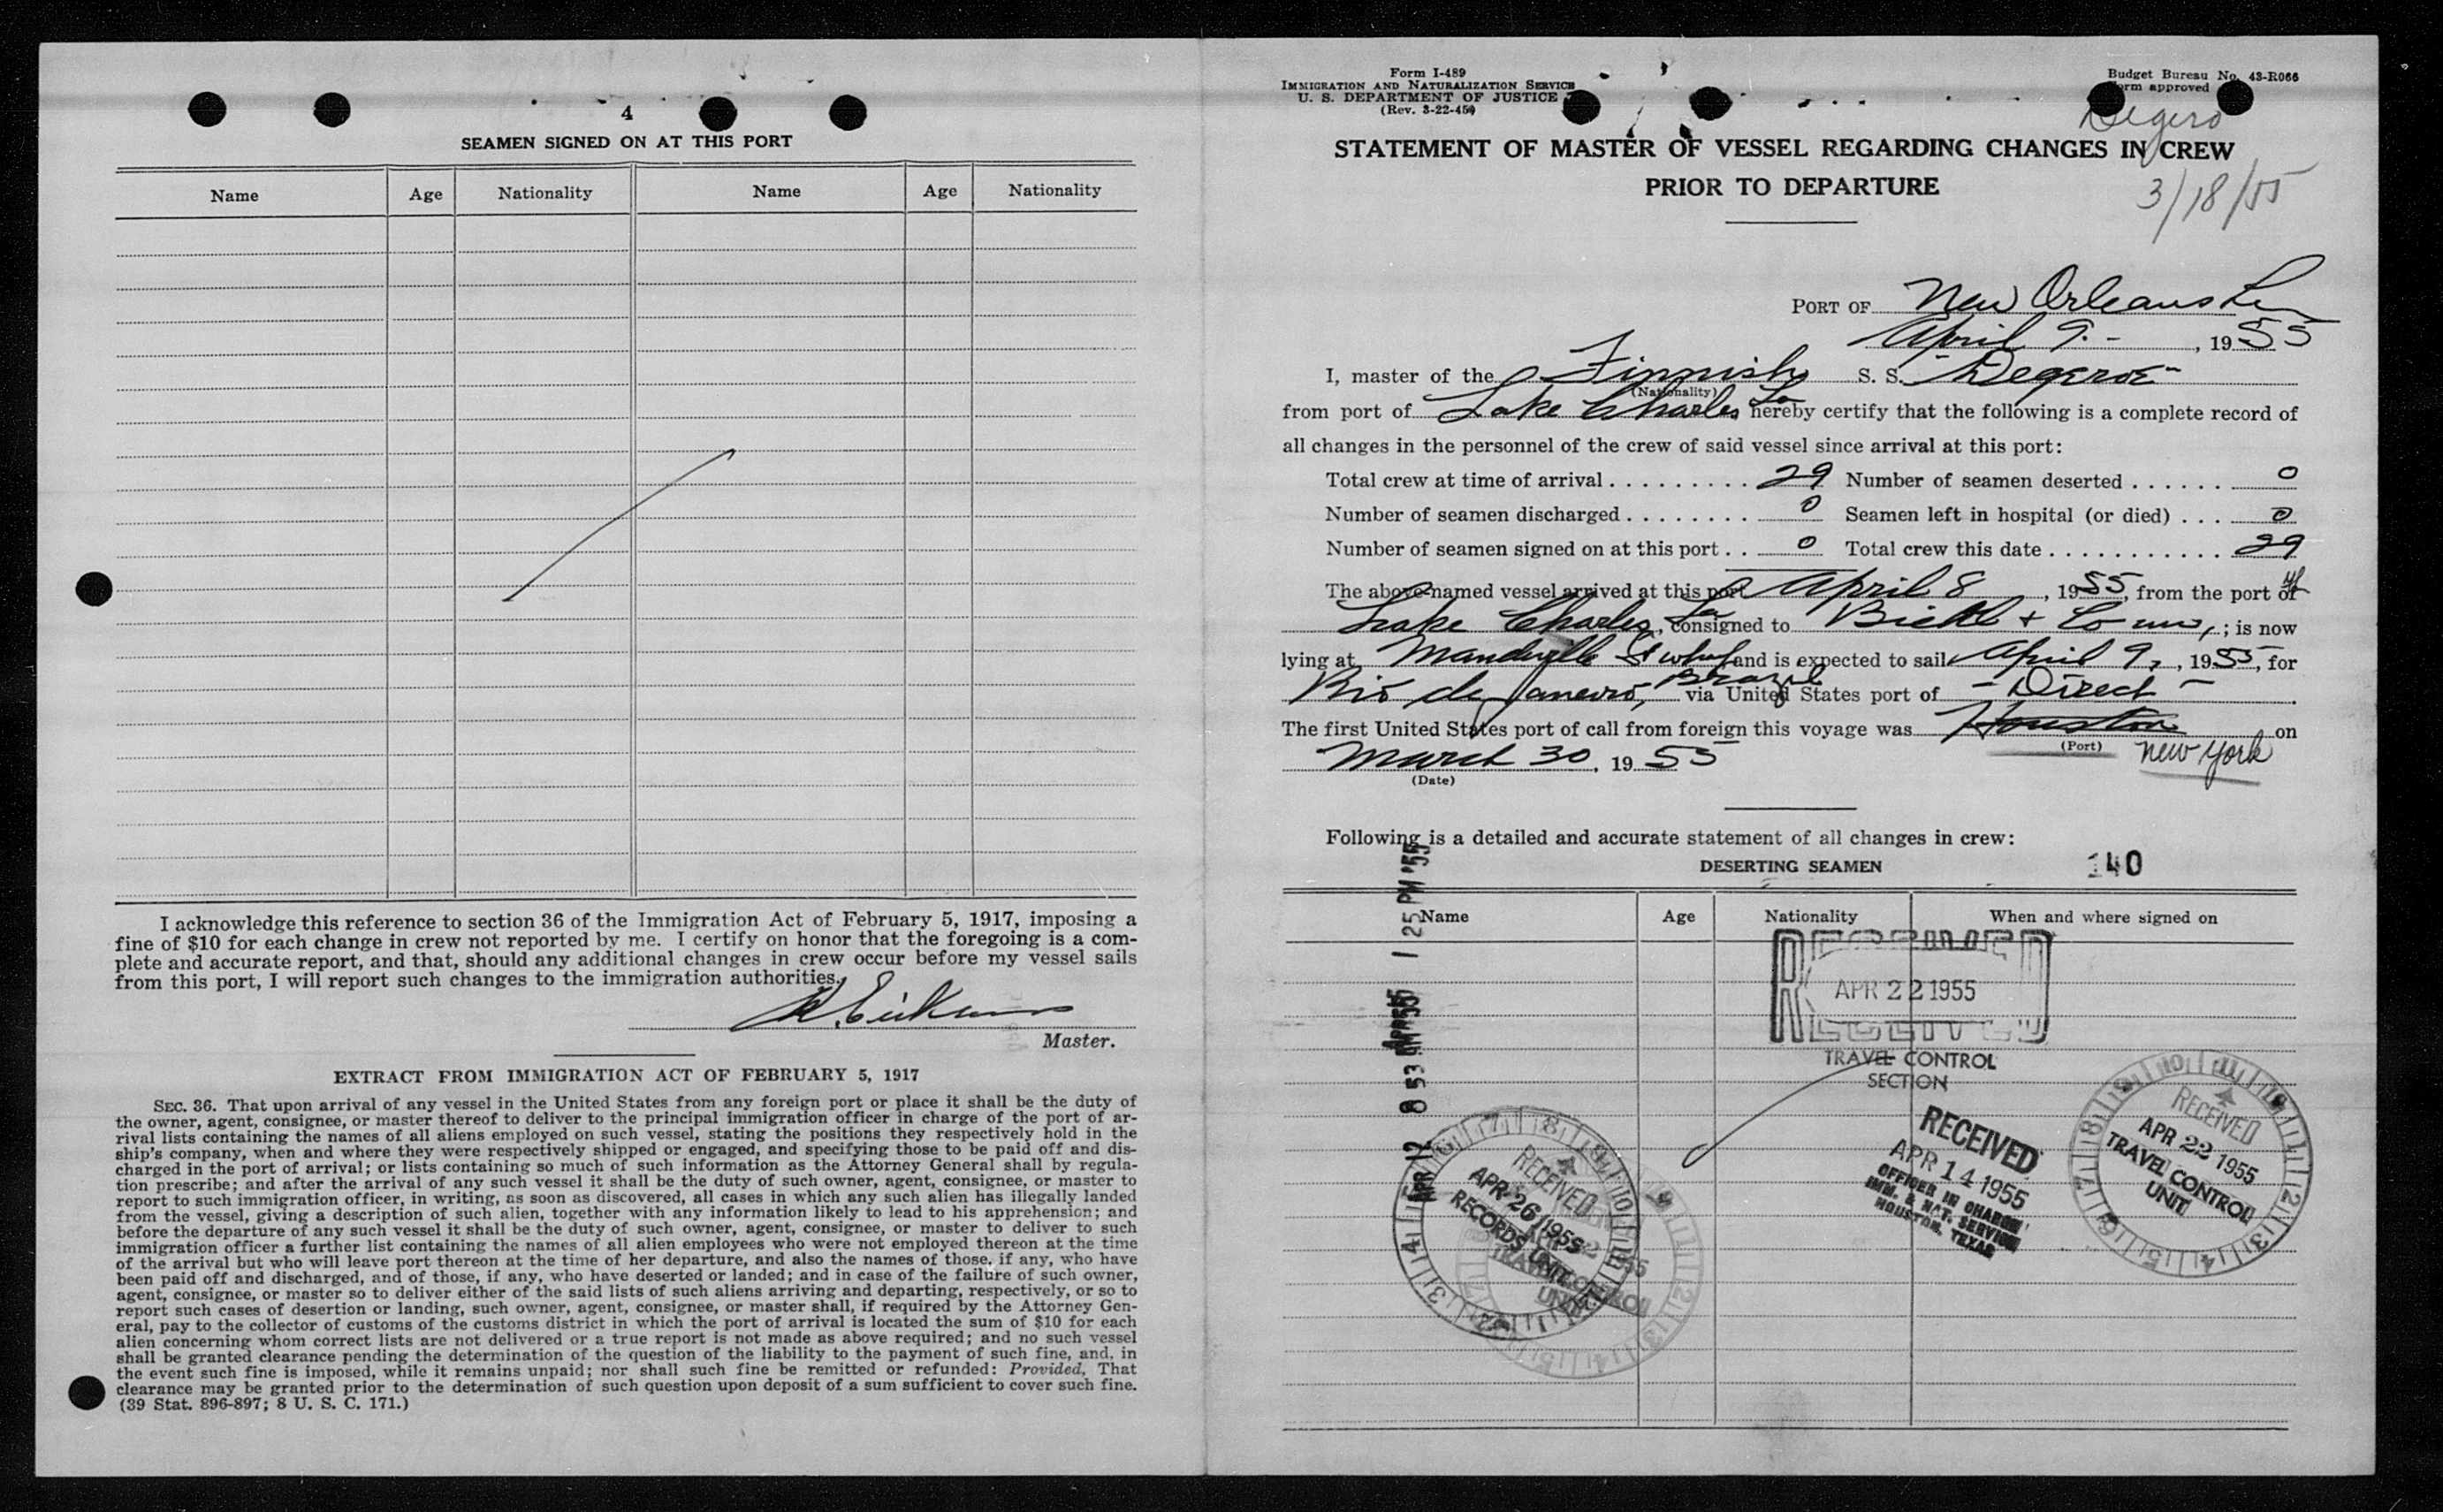 4
SEAMEN SIGNED ON AT THIS PORT
Name Age Nationality Name Age Nationality
I acknowledge this reference to section 36 of the Immigration Act of February 5, 1917, imposing a
fine of $10 for each change in crew not reported by me. I certify on honor that the foregoing is a com-
plete and accurate report, and that, should any additional changes in crew occur before my vessel sails
from this port, I will report such changes to the immigration authorities.
Master.
EXTRACT FROM IMMIGRATION ACT OF FEBRUARY 5, 1917
SEC. 36. That upon arrival of any vessel in the United States from any foreign port or place it shall be the duty of
the owner, agent, consignee, or master thereof to deliver to the principal immigration officer in charge of the port of ar-
rival lists containing the names of all aliens employed on such vessel, stating the positions they respectively hold in the
ship's company, when and where they were respectively shipped or engaged, and specifying those to be paid off and dis-
charged in the port of arrival; or lists containing so much of such information as the Attorney General shall by regula-
tion prescribe; and after the arrival of any such vessel it shall be the duty of such owner, agent, consignee, or master to
report to such immigration officer, in writing, as soon as discovered, all cases in which any such alien has illegally landed
from the vessel, giving a description of such alien, together with any information likely to lead to his apprehension; and
before the departure of any such vessel it shall be the duty of such owner, agent, consignee, or master to deliver to such
immigration officer a further list containing the names of all alien employees who were not employed thereon at the time
of the arrival but who will leave port thereon at the time of her departure, and also the names of those, if any, who have
been paid off and discharged, and of those, if any, who have deserted or landed; and in case of the failure of such owner,
agent, consignee, or master so to deliver either of the said lists of such aliens arriving and departing, respectively, or so to
report such cases of desertion or landing, such owner, agent, consignee, or master shall, if required by the Attorney Gen-
eral, pay to the collector of customs of the customs district in which the port of arrival is located the sum of $10 for each
alien concerning whom correct lists are not delivered or a true report is not made as above required; and no such vessel
shall be granted clearance pending the determination of the question of the liability to the payment of such fine, and, in
the event such fine is imposed, while it remains unpaid; nor shall such fine be remitted or refunded: Provided, That
clearance may be granted prior to the determination of such question upon deposit of a sum sufficient to cover such fine.
(39 Stat. 896-897; 8 U. S. C. 171.)
Form I-489
IMMIGRATION AND NATURALIZATION SERVICE
U. S. DEPARTMENT OF JUSTICE
(Rev. 3-22-45)
Budget Bureau No. 43-R066
Form approved
Degero
STATEMENT OF MASTER OF VESSEL REGARDING CHANGES IN CREW
PRIOR TO DEPARTURE
3/18/55
PORT OF New Orleans La
April 9.-, 1955
I, master of the Finnish S. S. "Degeroe"
(Nationality)
from port of Lake Charles La hereby certify that the following is a complete record of
all changes in the personnel of the crew of said vessel since arrival at this port:
Total crew at time of arrival 29 Number of seamen deserted 0
Number of seamen discharged 0 Seamen left in hospital (or died) 0
Number of seamen signed on at this port 0 Total crew this date 29
The above-named vessel arrived at this port April 8, 1955, from the port of
Lake Charles, La consigned to ; is now
lying at Mandeville St whf and is expected to sail April 9, 1955, for
Rio de Janeiro, Brazil via United States port of - Direct -
The first United States port of call from foreign this voyage was Houston on
(Port) New York
March 30, 1955
(Date)
Following is a detailed and accurate statement of all changes in crew:
DESERTING SEAMEN 140
Name Age Nationality When and where signed on
1 25 PM '55
APR 12 8 53 AM '55
RECEIVED
APR 22 1955
RECEIVED
TRAVEL CONTROL
SECTION
RECEIVED
APR 14 1955
OFFICER IN CHARGE
IMM. & NAT. SERVICE
HOUSTON, TEXAS
RECEIVED
APR 22 1955
TRAVEL CONTROL
UNIT
RECEIVED
APR 26 1955
RECORDS UNIT
TRAVEL CONTROL
UNIT